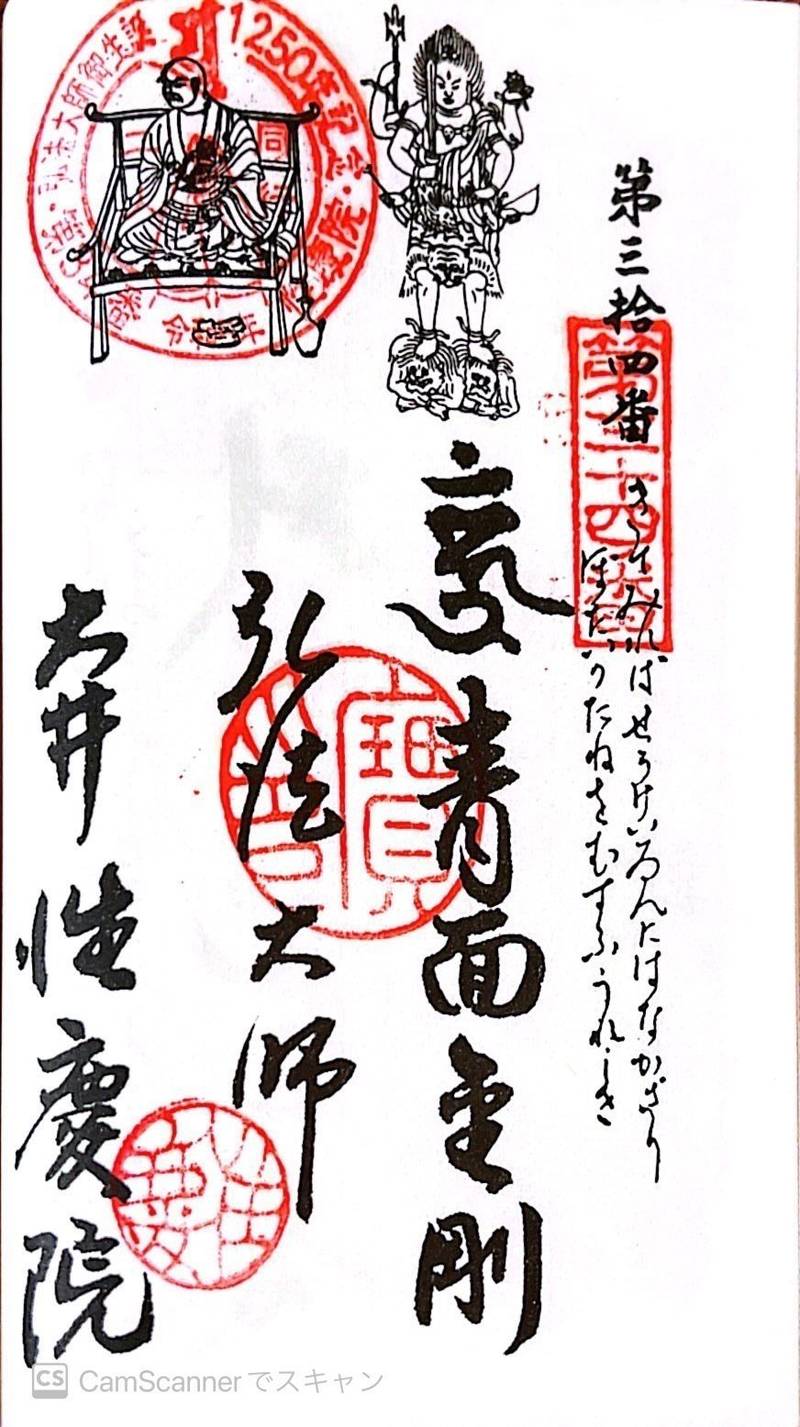 第三拾四番
第三十四番
きてみればせうけいゐんにはなかざり
ぼだいのたねをむすふうれしき
青面金剛
弘法大師
大井 性慶院
弘法大師御生誕1250年記念・
CS CamScannerでスキャン